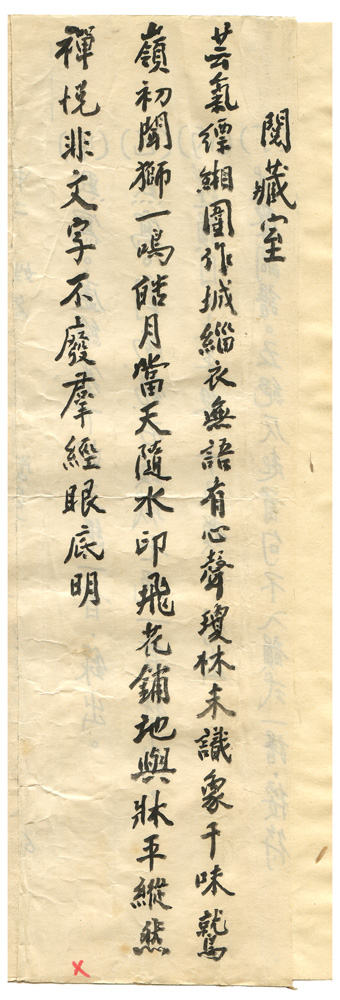 閱藏室
芸氣縹緗圍作城緇衣無語有心聲瓊林未識象千味鷲
嶺初聞獅一鳴皓月當天隨水印飛花鋪地與牀平縱然
禪悅非文字不廢羣經眼底明